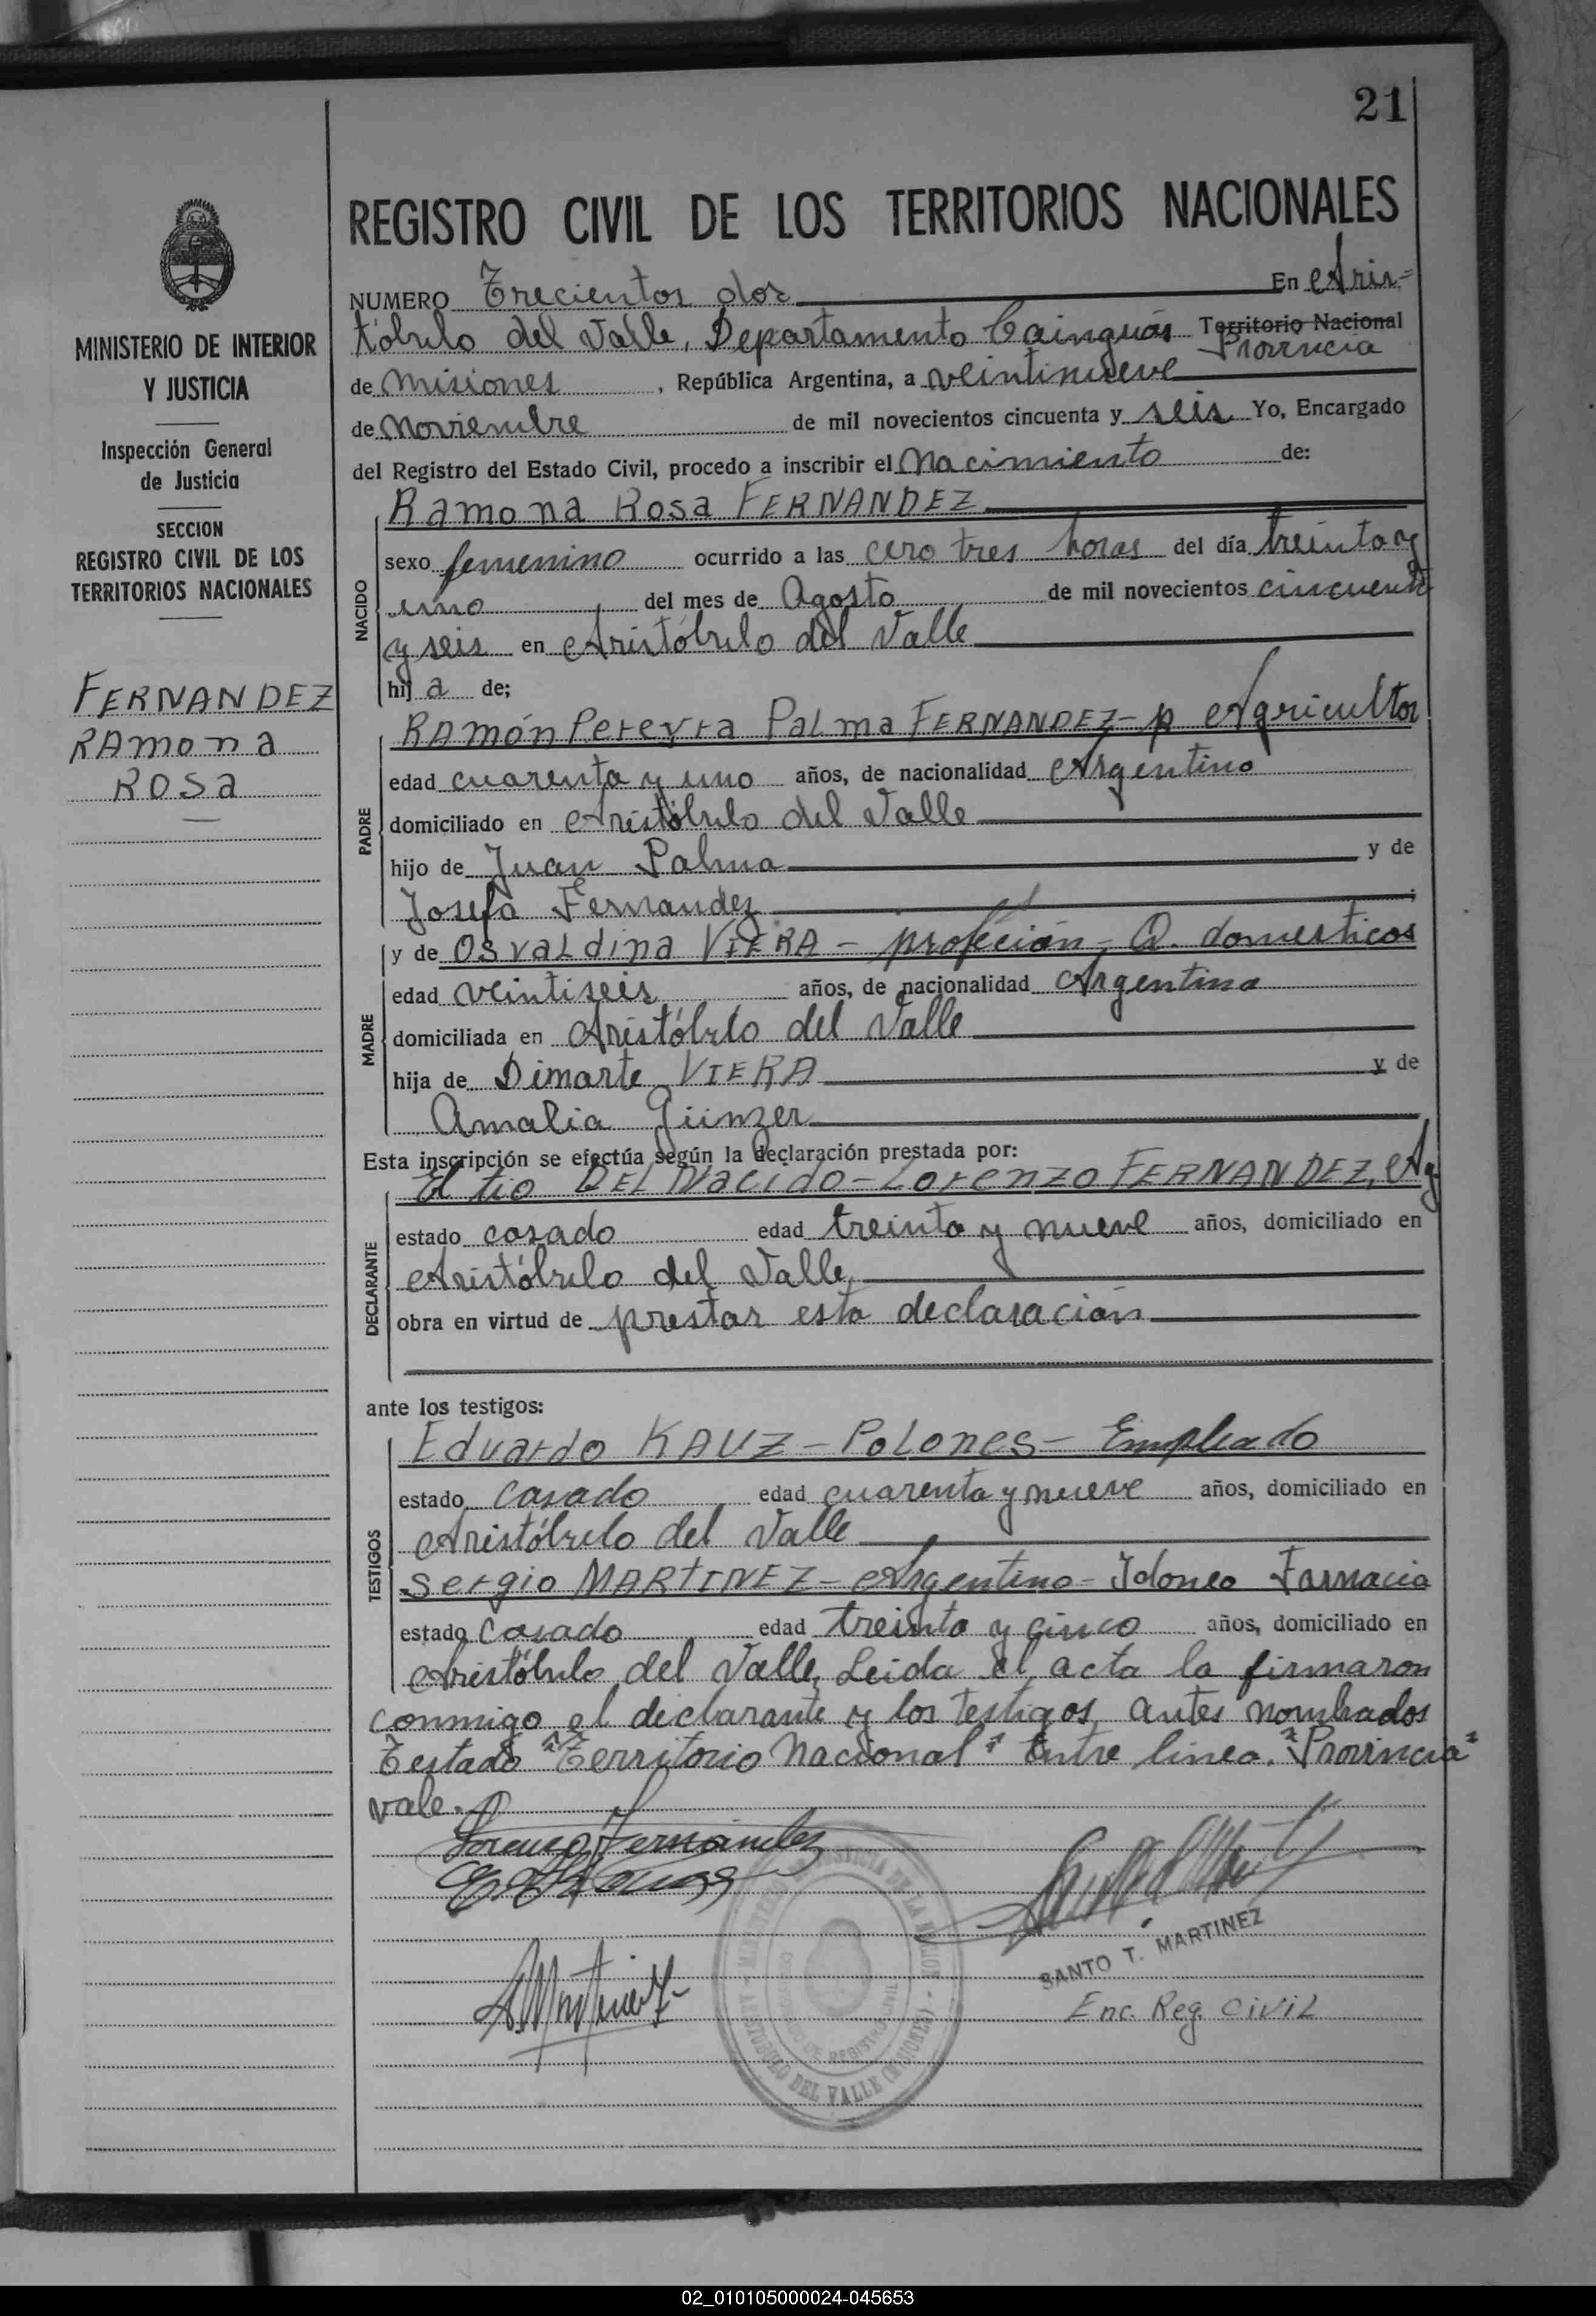 21
REGISTRO CIVIL DE LOS TERRITORIOS NACIONALES
MINISTERIO DE INTERIOR
Y JUSTICIA
Inspección General
de Justicia
SECCION
REGISTRO CIVIL DE LOS
TERRITORIOS NACIONALES
FERNANDEZ
RAMONA
ROSA
NUMERO Trecientos dos En Aris=
tóbulo del Valle, Departamento Cainguás Territorio Nacional
Provincia
de Misiones, República Argentina, a veintinueve
de Noviembre de mil novecientos cincuenta y seis Yo, Encargado
del Registro del Estado Civil, procedo a inscribir el Nacimiento de:
NACIDO
Ramona Rosa FERNANDEZ
sexo femenino ocurrido a las cero tres horas del día treinta y
uno del mes de Agosto de mil novecientos cincuenta
y seis en Aristóbulo del Valle
hij a de;
PADRE
RAMón Pereyra Palma FERNANDEZ - p Agricultor
edad cuarenta y uno años, de nacionalidad Argentino
domiciliado en Aristóbulo del Valle
hijo de Juan Palma y de
Josefa Fernandez
MADRE
y de Osvaldina VIERA - profeción - Q. domesticos
edad veintiseis años, de nacionalidad Argentina
domiciliada en Aristóbulo del Valle
hija de Dimarte VIERA y de
Amalia Günzer
Esta inscripción se efectúa según la declaración prestada por:
DECLARANTE
El tio DEL Nacido - Lorenzo FERNANDEZ, Ag
estado casado edad treinta y nueve años, domiciliado en
Aristóbulo del Valle,
obra en virtud de prestar esta declaración
ante los testigos:
TESTIGOS
Eduardo KAUZ - Polones - Empleado
estado casado edad cuarenta y nueve años, domiciliado en
Aristóbulo del Valle
Sergio MARTINEZ - Argentino - Idoneo Farmacia
estado Casado edad treinta y cinco años, domiciliado en
Aristóbulo del Valle, Leida el acta la firmaron
conmigo el declarante y los testigos antes nombrados
Testado "Territorio Nacional" Entre linea. "Provincia"
vale.
Lorenzo Fernández
SANTO T. MARTINEZ
Enc. Reg. Civil
ARISTOBULO DEL VALLE (MISIONES)
02_010105000024-045653